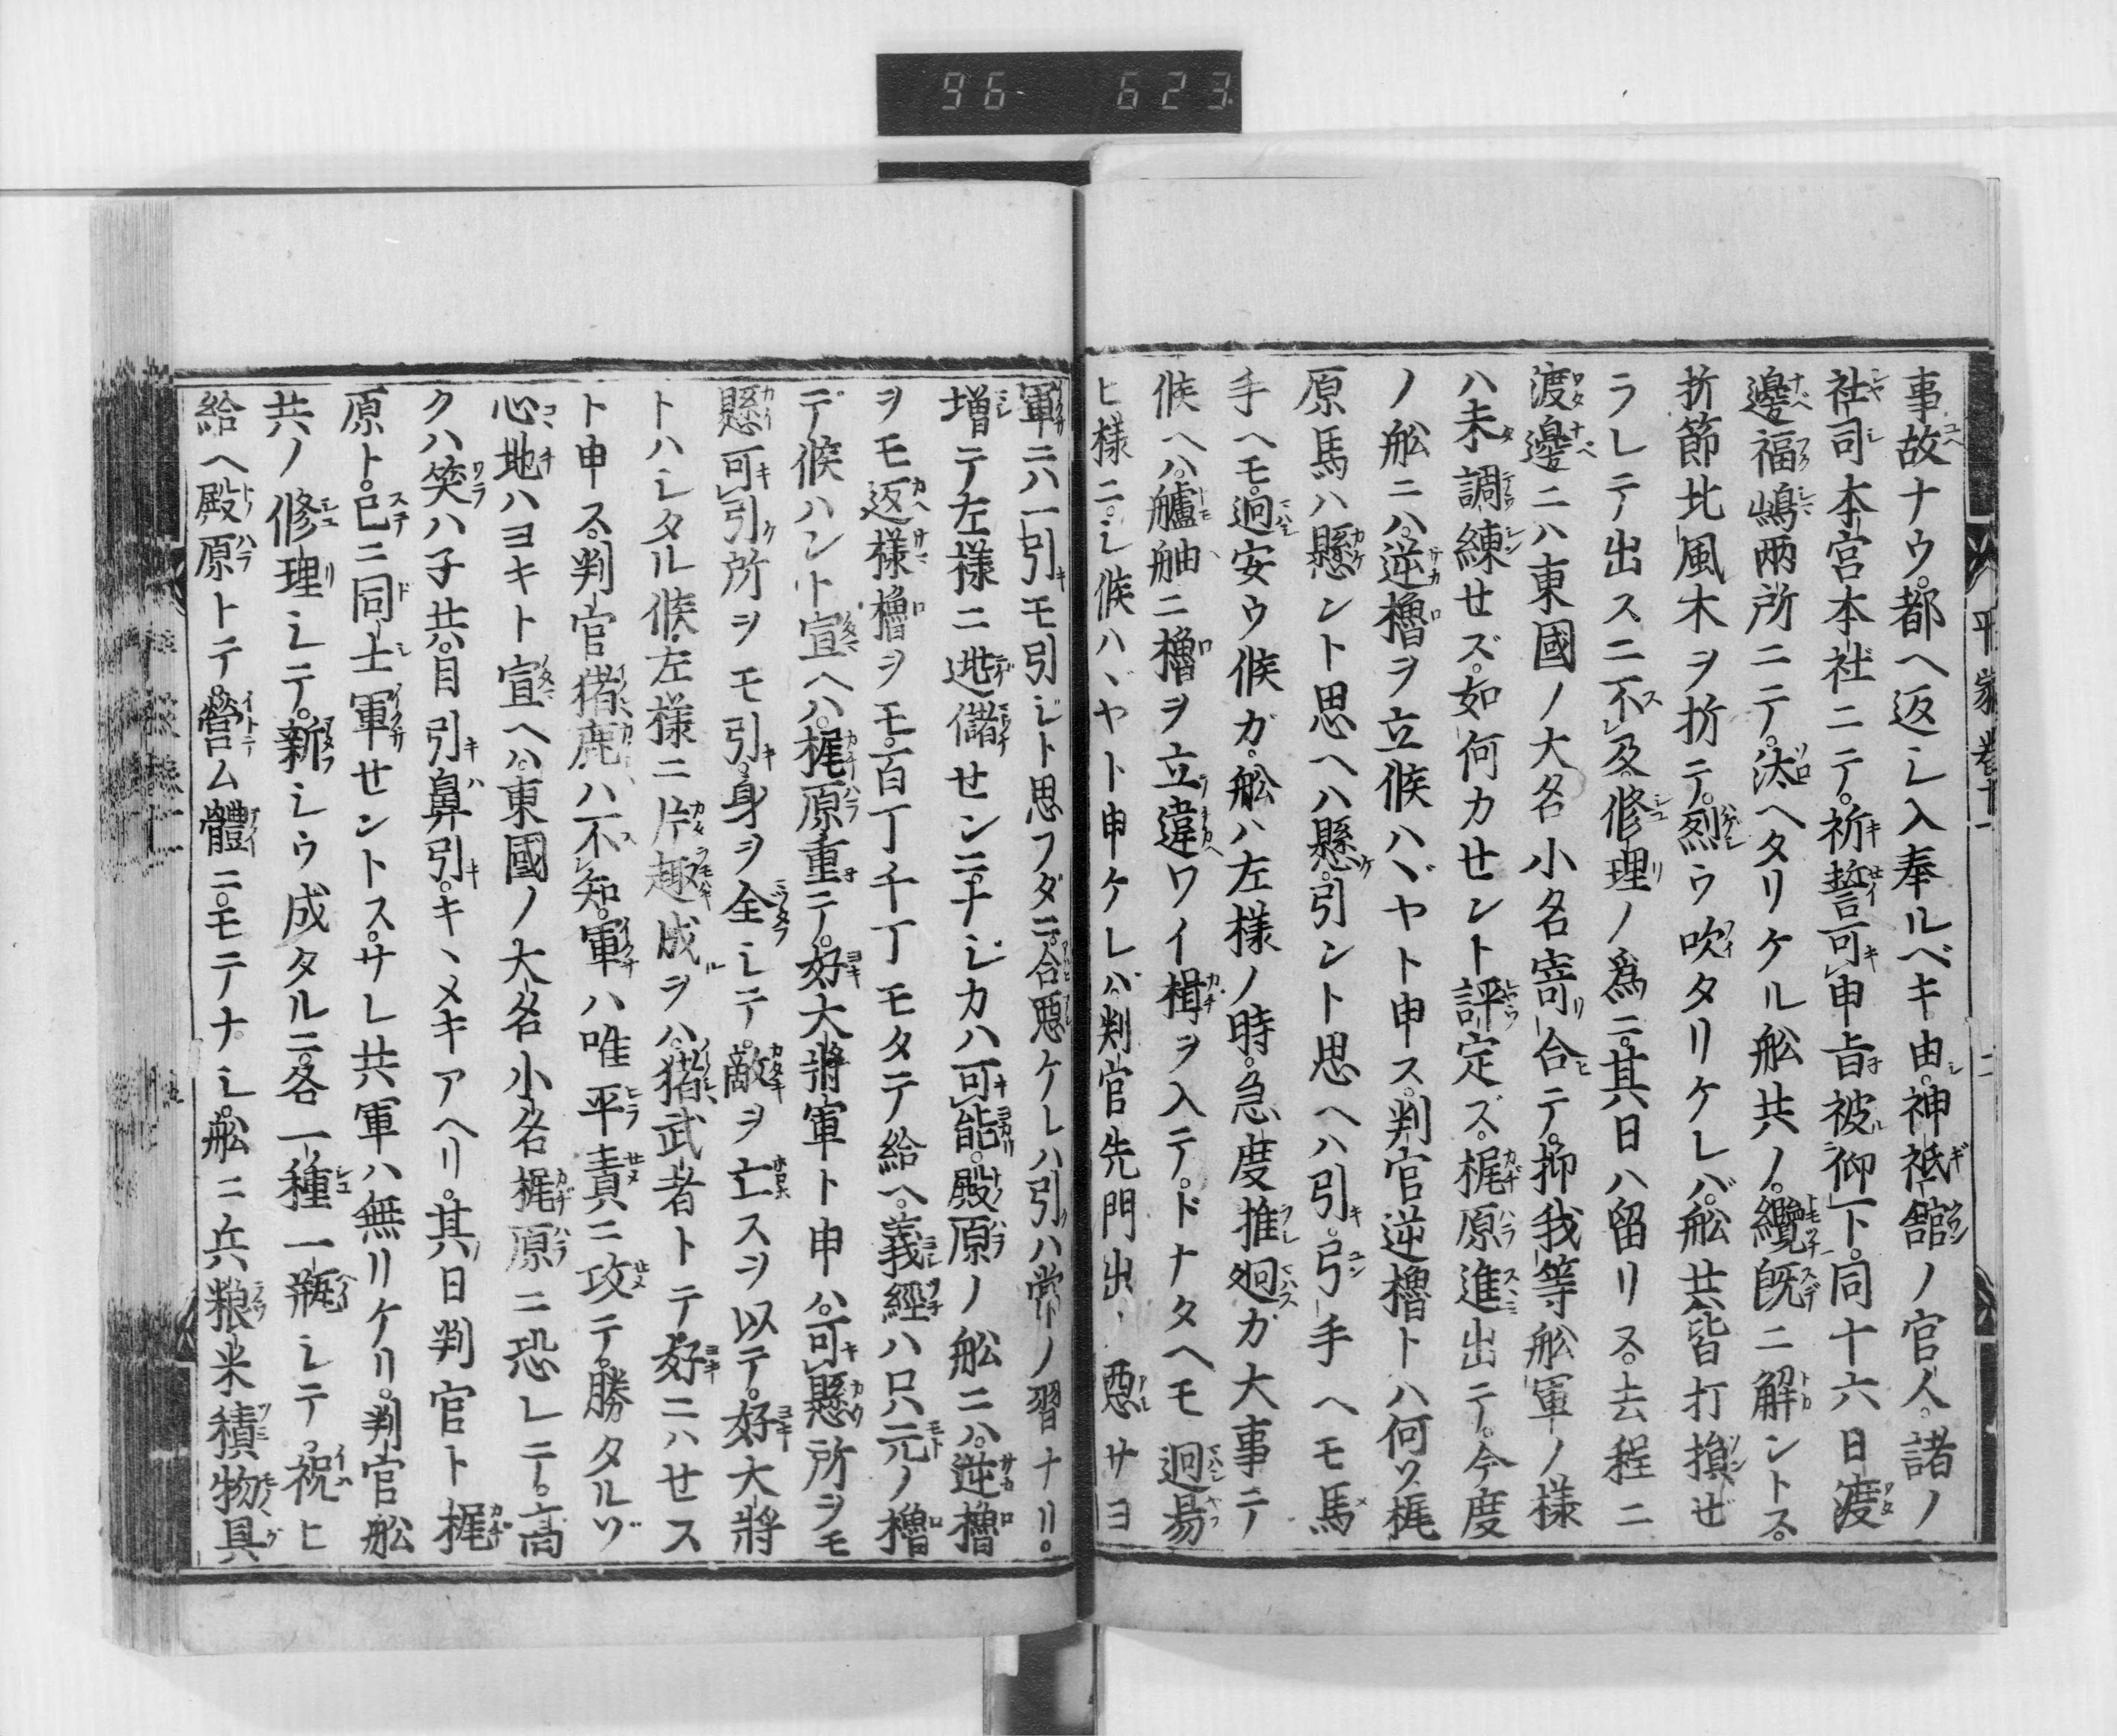 96 623
平家巻十一
二
事故ナウ。都ヘ返シ入奉ルベキ由。神祇館ノ官人。諸ノ
社司本宮本社ニテ。祈誓可申旨被仰下。同十六日渡
邊福嶋兩所ニテ。汰ヘタリケル舩共ノ。纜既ニ解ントス。
折節北風木ヲ折テ。烈ウ吹タリケレバ。舩共皆打損ゼ
ラレテ出スニ不及。修理ノ爲ニ。其日ハ留リヌ。去程ニ
渡邊ニハ東國ノ大名小名寄合テ。抑我等舩軍ノ様
ハ未調練せズ。如何カせント評定ズ。梶原進出テ。今度
ノ舩ニハ。逆櫓ヲ立候ハヾヤト申ス。判官逆櫓トハ何ソ梶
原馬ハ懸ント思ヘハ懸。引ント思ヘハ引。弓手ヘモ馬
手ヘモ。迴安ウ候ガ。舩ハ左様ノ時。急度推迴カ大事ニテ
候ヘハ。艫舳ニ櫓ヲ立違ワイ楫ヲ入テ。ドナタヘモ迴易
ヒ様ニ。シ候ハヾヤト申ケレバ。判官先門出ノ惡サヨ
軍ニハ一引モ引ジト思フダニ。合惡ケレハ引ハ常ノ習ナリ。
増テ左様ニ迯儲せンニ。ナジカハ可能。殿原ノ舩ニハ。逆櫓
ヲモ返様櫓ヲモ。百丁千丁モタテ給ヘ。義經ハ只元ノ櫓
デ候ハント宣ヘハ。梶原重テ。好大將軍ト申ハ。可懸所ヲモ
懸可引所ヲモ引。身ヲ全シテ。敵ヲ亡スヲ以テ。好大將
トハシタル候。左様ニ片趣成ヲハ。猪武者トテ好ニハせス
ト申ス。判官猪鹿ハ不知。軍ハ唯平責ニ攻テ。勝タルゾ
心地ハヨキト宣ヘハ。東國ノ大名小名梶原ニ恐レテ。高
クハ笑ハ子共。目引鼻引。キヽメキアヘリ。其日判官ト梶
原ト。已ニ同士軍せントス。サレ共軍ハ無リケリ。判官舩
共ノ修理シテ。新シウ成タルニ。各一種一瓶シテ。祝ヒ
給ヘ殿原トテ。營ム體ニ。モテナシ。舩ニ兵粮米積物具